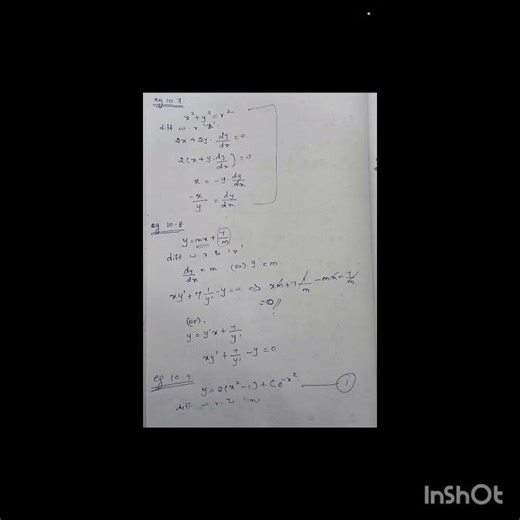 eg 10.7
x² + y² = r²
diff w. r 'x'.
2x + 2y · dy/dx = 0
2(x + y · dy/dx) = 0
x = -y · dy/dx
-x/y = dy/dx
eg 10.8
y = mx + 7/m
diff w. r. to 'x'
dy/dx = m (or) y' = m
xy' + 7 1/y' - y = 0 ⇒ xm + 7 1/m - mx - 7/m
= 0//
(or).
y = y'x + 7/y'
xy' + 7/y' - y = 0
eg 10.9
y = 2(x² - 1) + Ce^-x² ① 
diff w. r. to
InShOt